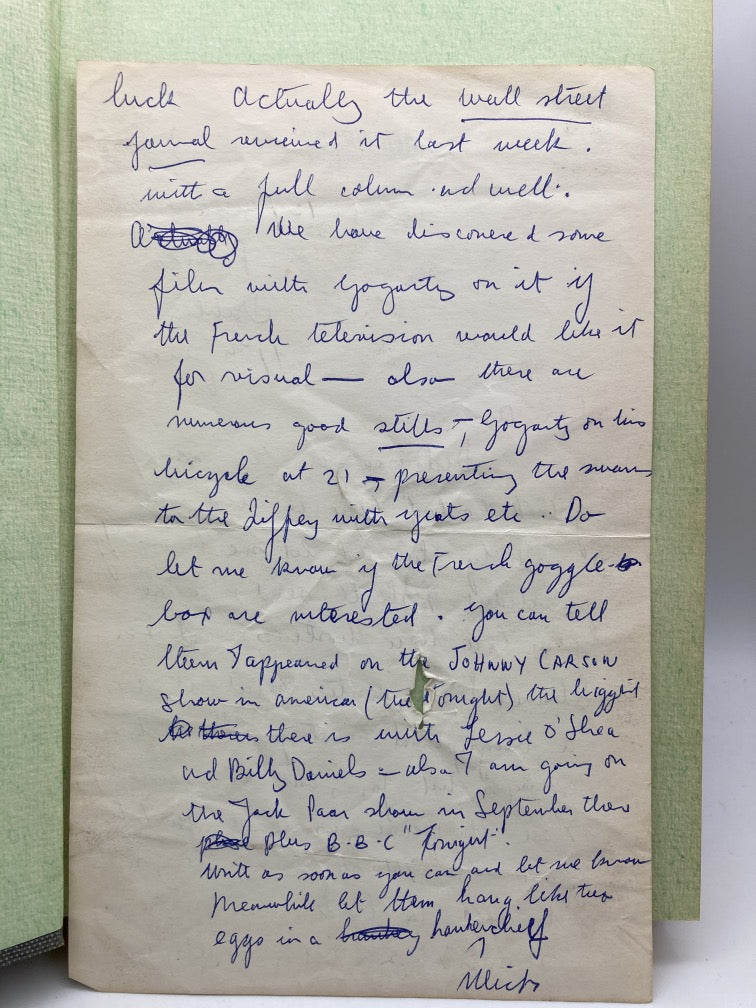 luck Actually the wall street
journal reviewed it last week.
with a full column and well.
We have discovered some
film with Gogarty on it if
the French television would like it
for visual — also there are
numerous good stills —, Gogarty on his
bicycle at 21 — presenting the swans
to the Liffey with yeats etc .. Do
let me know if the French goggle-
box are interested. You can tell
them I appeared on the JOHNNY CARSON
show in america (the Tonight) the biggest
there is with Tessie O'Shea
and Billy Daniels — also I am going on
the Jack Paar show in September there
plus B.B.C "Tonight".
Write as soon as you can and let me know
Meanwhile let them hang like two
eggs in a hankerchief
Ulick